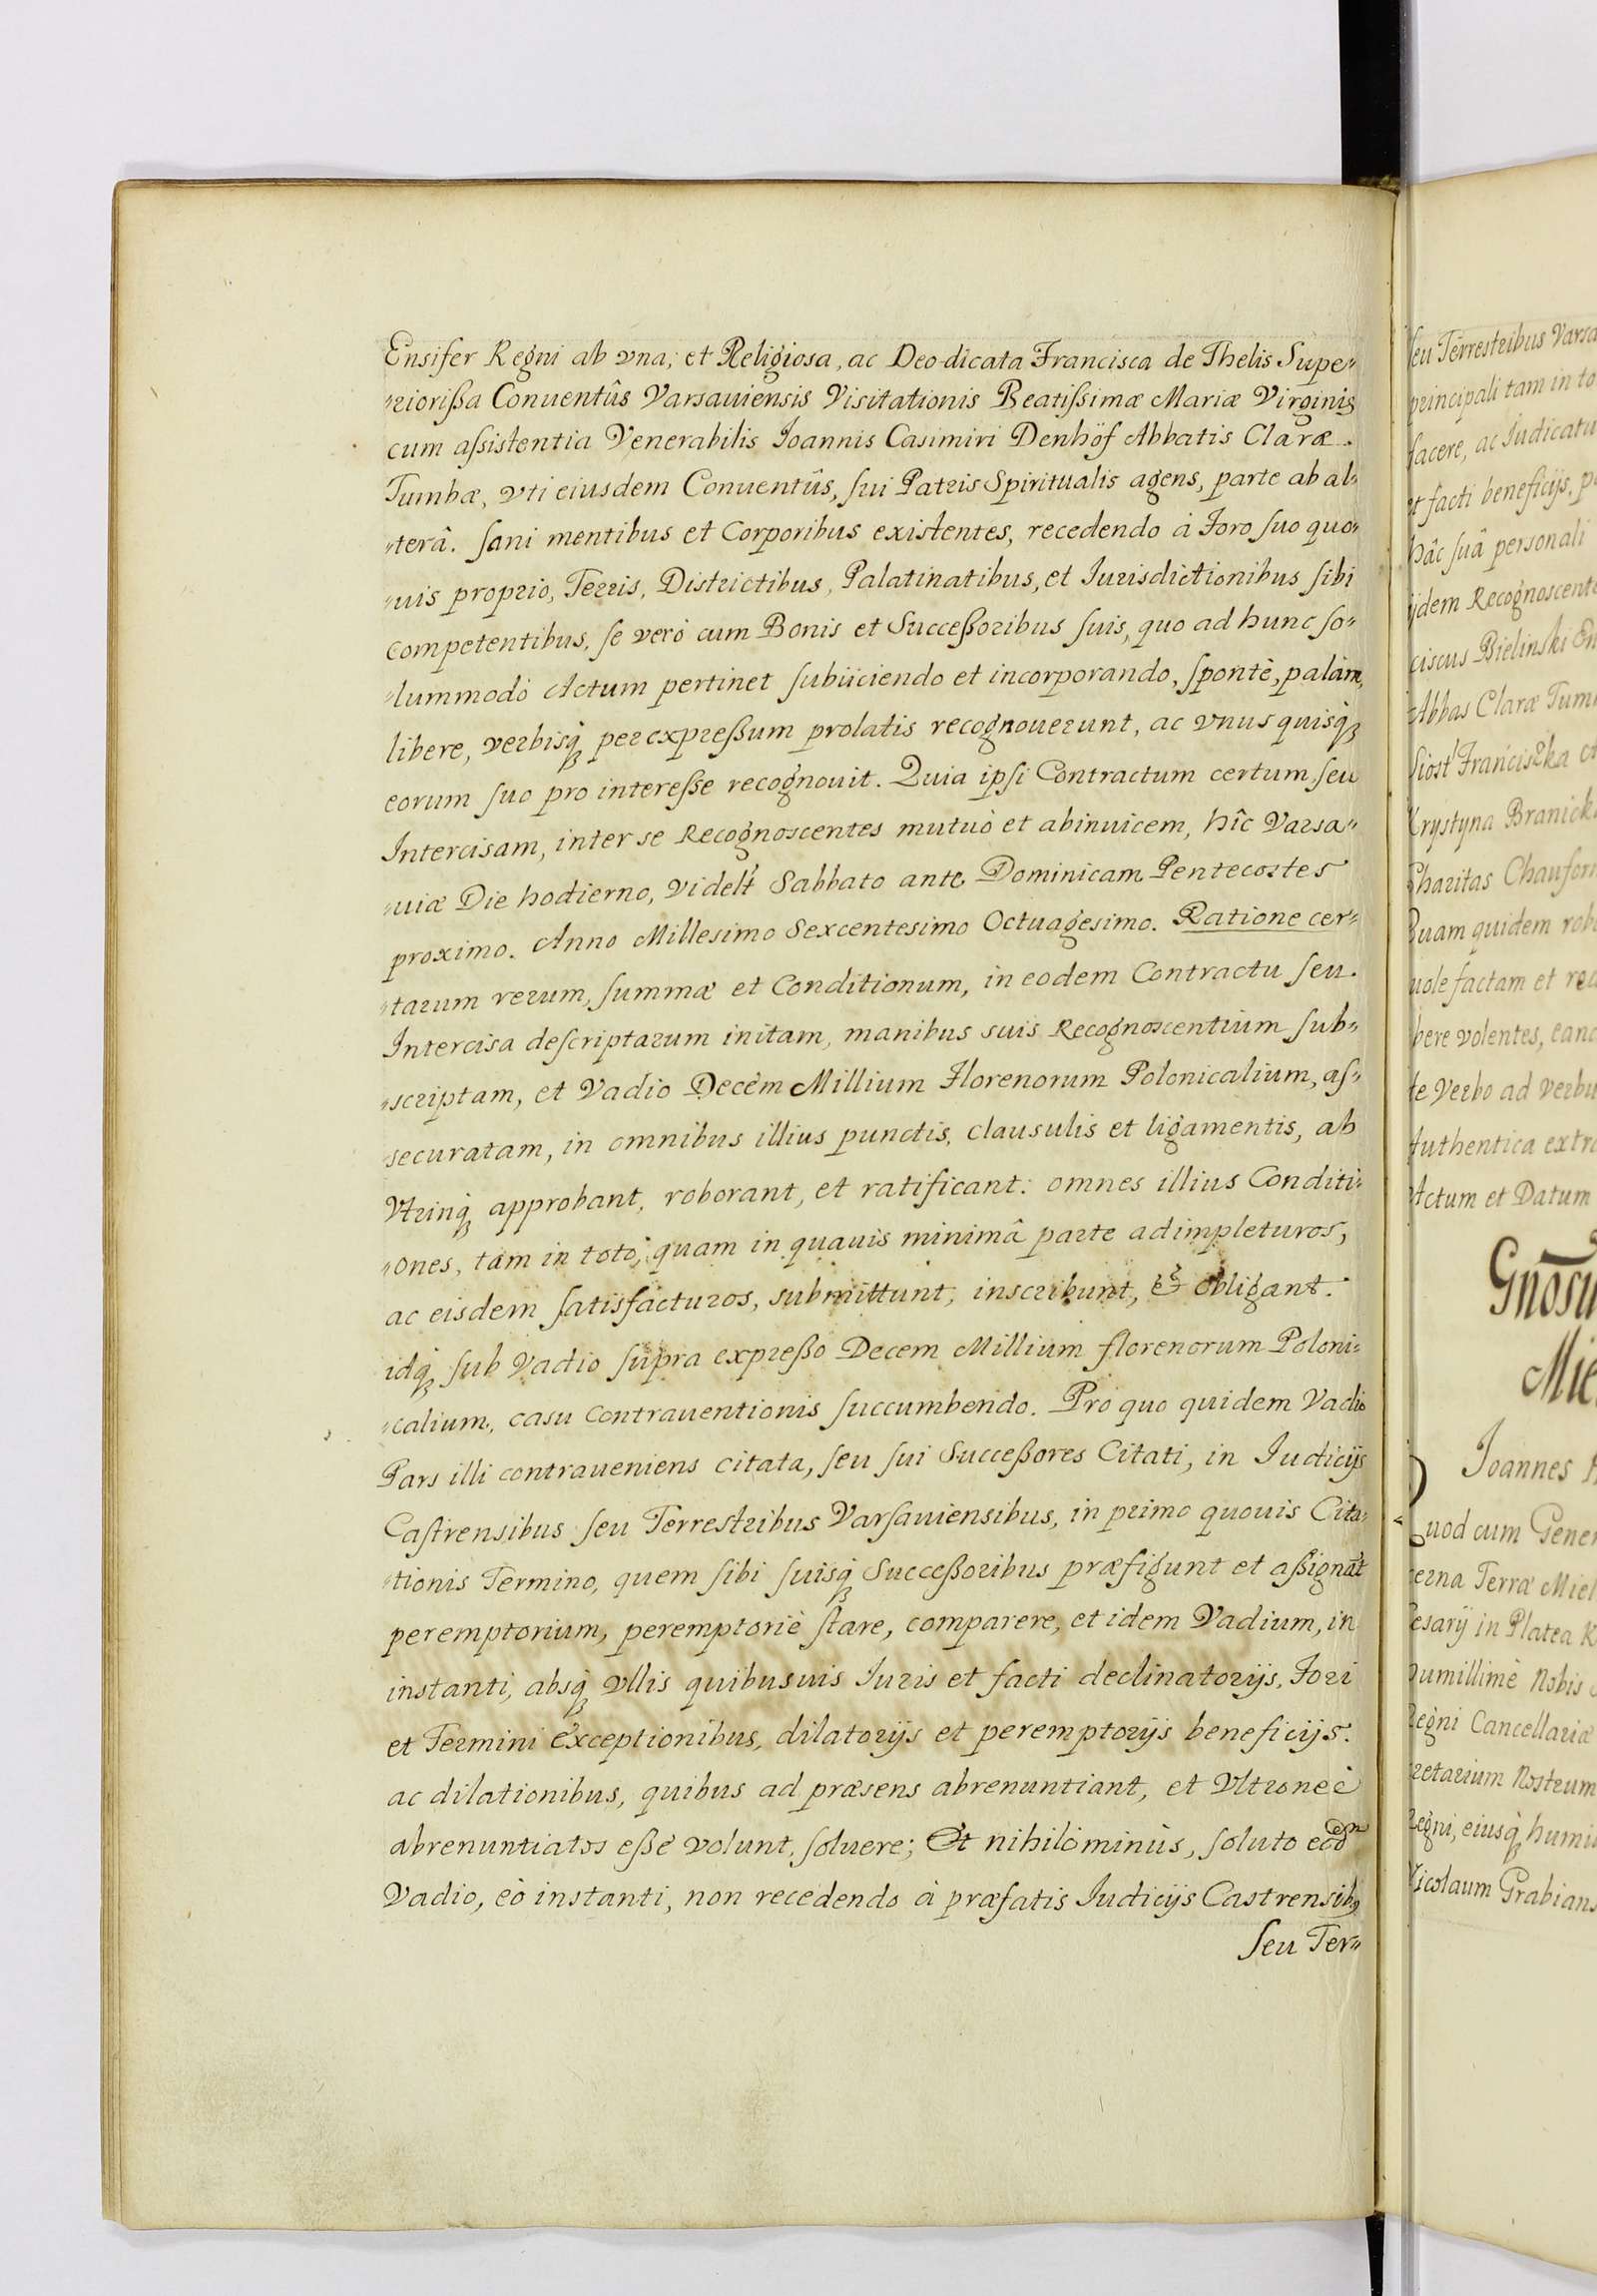 Ensifer Regni ab vna; et Religiosa, ac Deo-dicata Francisca de Thelis Supe〃
〃riorißa Conuentûs Varsauiensis Visitationis Beatißimæ Mariæ Virginis
cum aßistentia Venerabilis Joannis Casimiri Denhöf Abbatis Claræ
Tumbæ, vti eiusdem Conuentûs, sui Patris Spiritualis agens, parte ab al〃
〃terâ. Sani mentibus et Corporibus existentes, recedendo à Foro suo quo〃
〃uis proprio, Terris, Districtibus, Palatinatibus, et Iurisdictionibus sibi
competentibus, se verò cum Bonis et Succeßoribus suis, quo ad hunc so〃
〃lummodò Actum pertinet subijciendo et incorporando, spontè, palàm,
libere, verbisq́ꝫ per expreßum prolatis recognouerunt, ac vnus quisq́ꝫ
eorum suo pro intereße recognouit. Quia ipsi Contractum certum, seu
Intercisam, inter se Recognoscentes mutuò et abinuicem, hîc Varsa〃
〃uiæ Die hodierno, videlt́ Sabbato ante Dominicam Pentecostes
proximo. Anno Millesimo Sexcentesimo Octuagesimo. Ratione cer〃
〃tarum rerum, summæ et Conditionum, in eodem Contractu seu
Intercisa descriptarum initam, manibus suis Recognoscentium sub〃
〃scriptam, et Vadio Decem Millium Florenorum Polonicalium, as〃
〃securatam, in omnibus illius punctis, clausulis et ligamentis, ab
Vtrinq́ꝫ approbant, roborant, et ratificant: omnes illius Conditi〃
〃ones, tam in toto, quam in quauis minimâ parte adimpleturos,
ac eisdem satisfacturos, submittunt, inscribunt, & obligant.
idq́ꝫ sub Vadio supra expreßo Decem Millium florenorum Poloni〃
〃calium, casu contrauentionis succumbendo. Pro quo quidem Vadio
Pars illi contraueniens citata, seu sui Succeßores Citati, in Iudicijs
Castrensibus seu Terrestribus Varsauiensibus, in primo quouis Cita〃
〃tionis Termino, quem sibi suisq́ꝫ Succeßoribus præfigunt et aßignāt
peremptorium, peremptoriè stare, comparere, et idem Vadium, in
instanti, absq́ꝫ vllis quibusuis Iuris et facti declinatorijs, Fori
et Termini exceptionibus, dilatorijs et peremptorijs beneficijs.
ac dilationibus, quibus ad præsens abrenuntiant, et Vltroneè
abrenuntiatos eße volunt, soluere; Et nihilominùs, soluto eodem
Vadio, eò instanti, non recedendo à præfatis Iudicijs Castrensibꝰ
seu Ter〃
seu Terrestribus Varsa
principali tam in to
facere, ac Iudicatu
et facti beneficijs, p
hâc suâ personali
ijdem Recognoscent
ciscus Bielinski En
Abbas Claræ Tum
Siost Franciszka
Krystyna Branick
Charitas Chaufor
Quam quidem rob
uole factam et rec
bere volentes, eand
te Verbo ad verbu
Authentica extra
Actum et Datum
Gnosu
Mie
Joannes
Quod cum Gener
erna Terræ Miel
esarij in Platea K
humillimè Nobis
Regni Cancellariæ
cretarium Nostrum
Regni, eiusq́ꝫ humi
Nicolaum Grabians